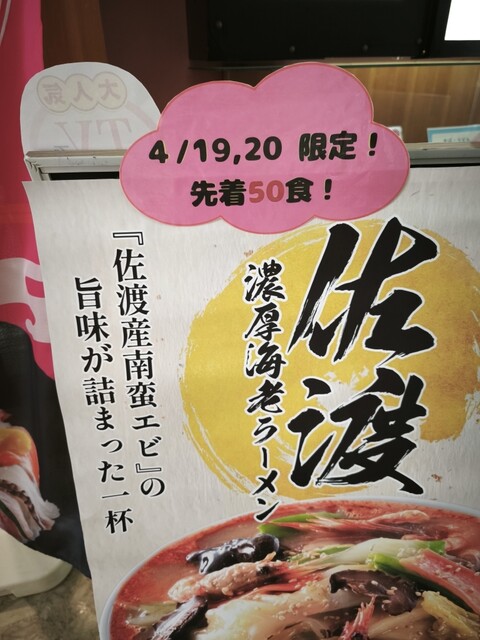 大人気
TV
4/19,20 限定！
先着50食！
佐渡
濃厚海老ラーメン
『佐渡産南蛮エビ』の
旨味が詰まった一杯